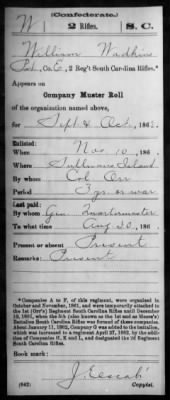 (Confederate.)
W 2 Rifles. S. C.
William Watkins
Pvt., Co. E, 2 Reg't South Carolina Rifles.*
Appears on
Company Muster Roll
of the organization named above,
for Sept & Oct, 186
Enlisted:
When Nov 10, 186
Where Sullivans Island
By whom Col Orr
Period 3 yrs. or war
Last paid:
By whom Quartermaster
To what time Aug 30, 186
Present or absent Present
Remarks: Present
*Companies A to F, of this regiment, were organized in
October and November, 1861, and were temporarily attached to
the 1st (Orr's) Regiment South Carolina Rifles until December
10, 1861, when the 5th (also known as the 1st and as Moore's)
Battalion South Carolina Rifles was formed of these companies.
About January 11, 1862, Company G was added to the battalion,
which was increased to a regiment April 27, 1862, by the addi-
tion of Companies H, K and L, and designated the 2d Regiment
South Carolina Rifles.
Book mark:
(642)
Copyist.